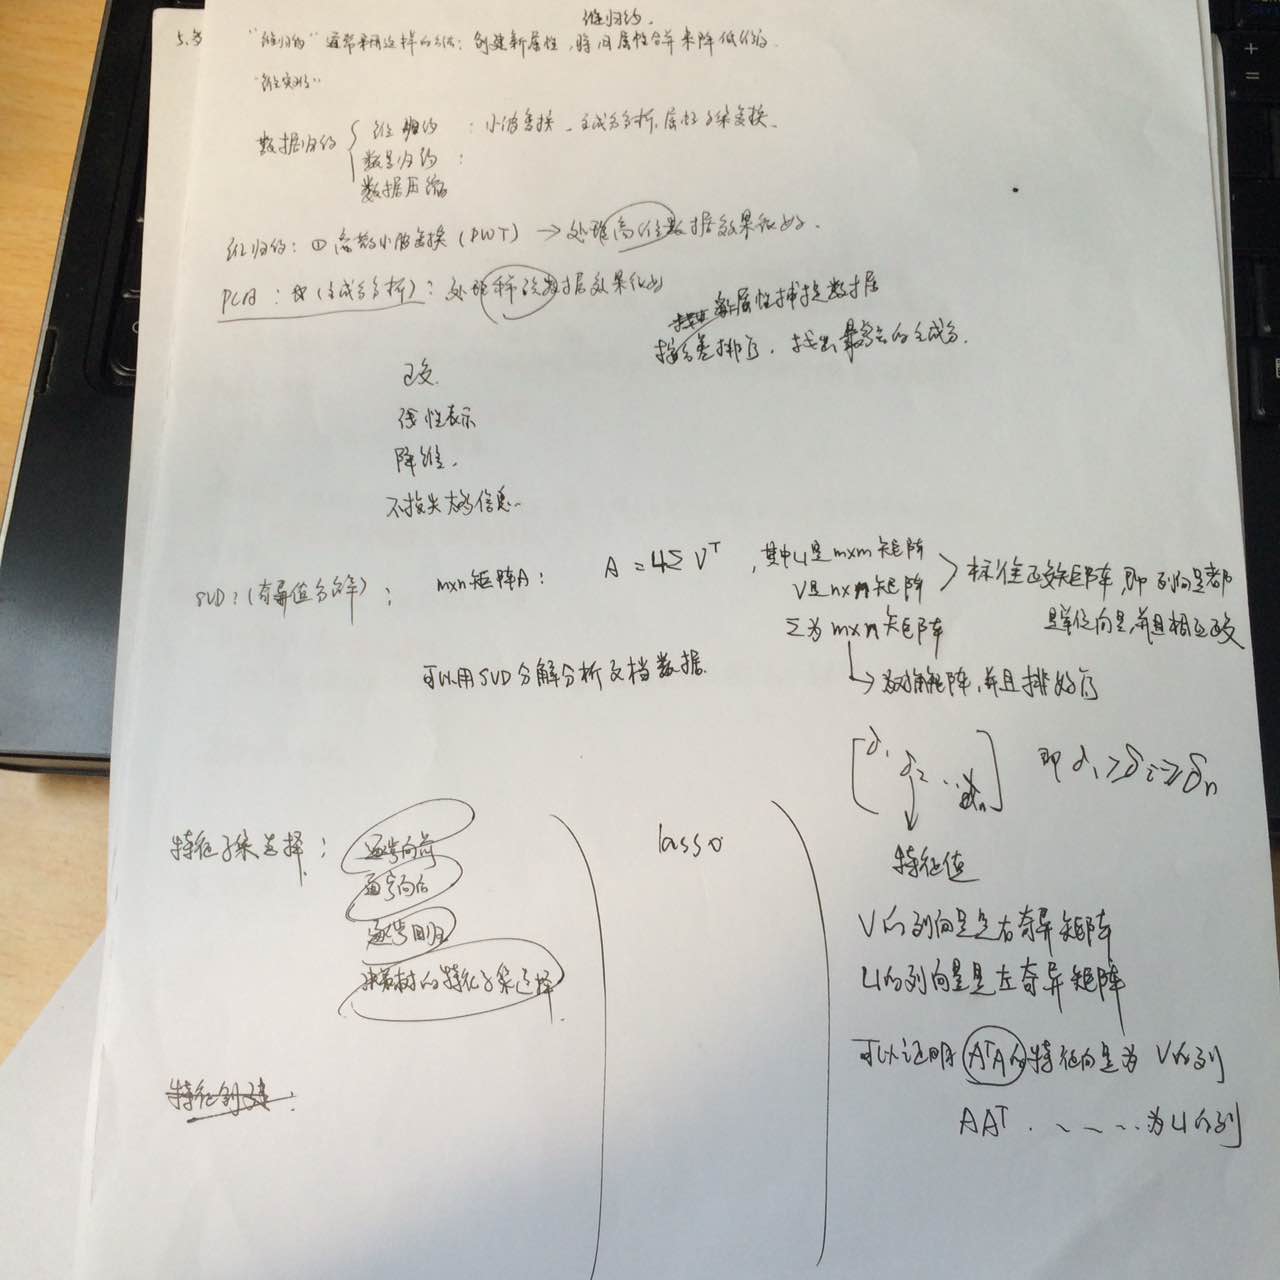 维归约.
"维归约"通常采用这样的方法：创建新属性，将旧属性合并来降低维度.
数据归约
维归约：小波变换、主成分分析、属性子集变换、
数量归约：
数据压缩
维归约：① 离散小波变换（DWT）→处理高维数据效果比较好.
PCA：即（主成分分析）：处理稀疏数据效果比较好
新属性捕捉数据
按方差排序，找出最高的主成分.
正交.
线性表示
降维.
不损失太多信息.
SVD：（奇异值分解）：
m×n矩阵A： A = UΣVᵀ，其中U是m×m矩阵
V是n×n矩阵
Σ为m×n矩阵
标准正交矩阵，即列向量都
是单位向量，并且相互正交
可以用SVD分解分析文档数据.
→为对角矩阵，并且排好序
δ₁ δ₂ ... δn
即 δ₁ > δ₂ ≥ δn
特征值
特征子集选择：
逐步向前
逐步向后
逐步回归
决策树的特征子集选择.
lasso
V的列向量是右奇异矩阵
U的列向量是左奇异矩阵
可以证明AᵀA的特征向量为V的列
AAᵀ .、—、..为U的列
特征创建.